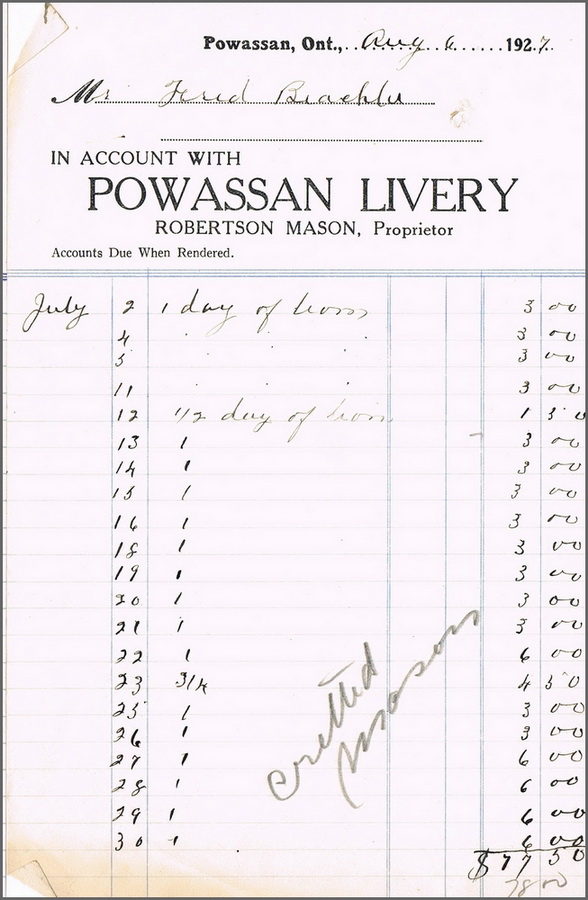 Powassan, Ont., Aug 6 1927.
Mr Fred
IN ACCOUNT WITH
POWASSAN LIVERY
ROBERTSON MASON, Proprietor
Accounts Due When Rendered.
July 2 1 day of 3 00
4 " " " 3 00
5 3 00
11 " " " 3 00
12 1/2 day of 1 50
13 1 3 00
14 1 3 00
15 1 3 00
16 1 3 00
18 1 3 00
19 1 3 00
20 1 3 00
21 1 3 00
22 1 6 00
23 4 50
25 1 3 00
26 1 3 00
27 1 6 00
28 1 6 00
29 1 6 00
30 1 6 00
$77 50
78 00
Masons